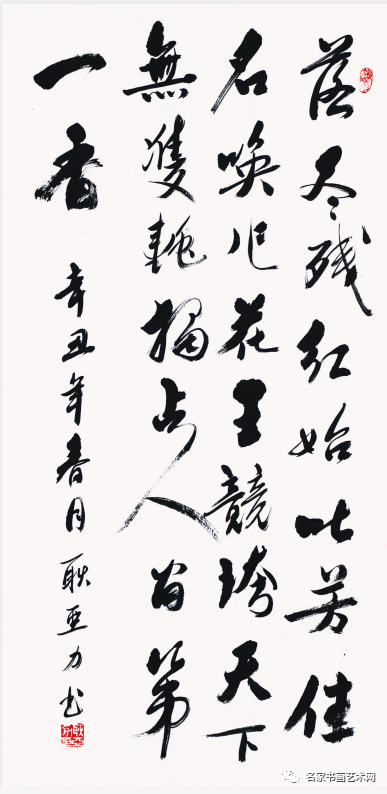 落尽残红始吐芳佳
名唤作花王競誇天下
無雙艷獨占人间第
一香
辛丑年春月耿亚力书
名家书画艺术网